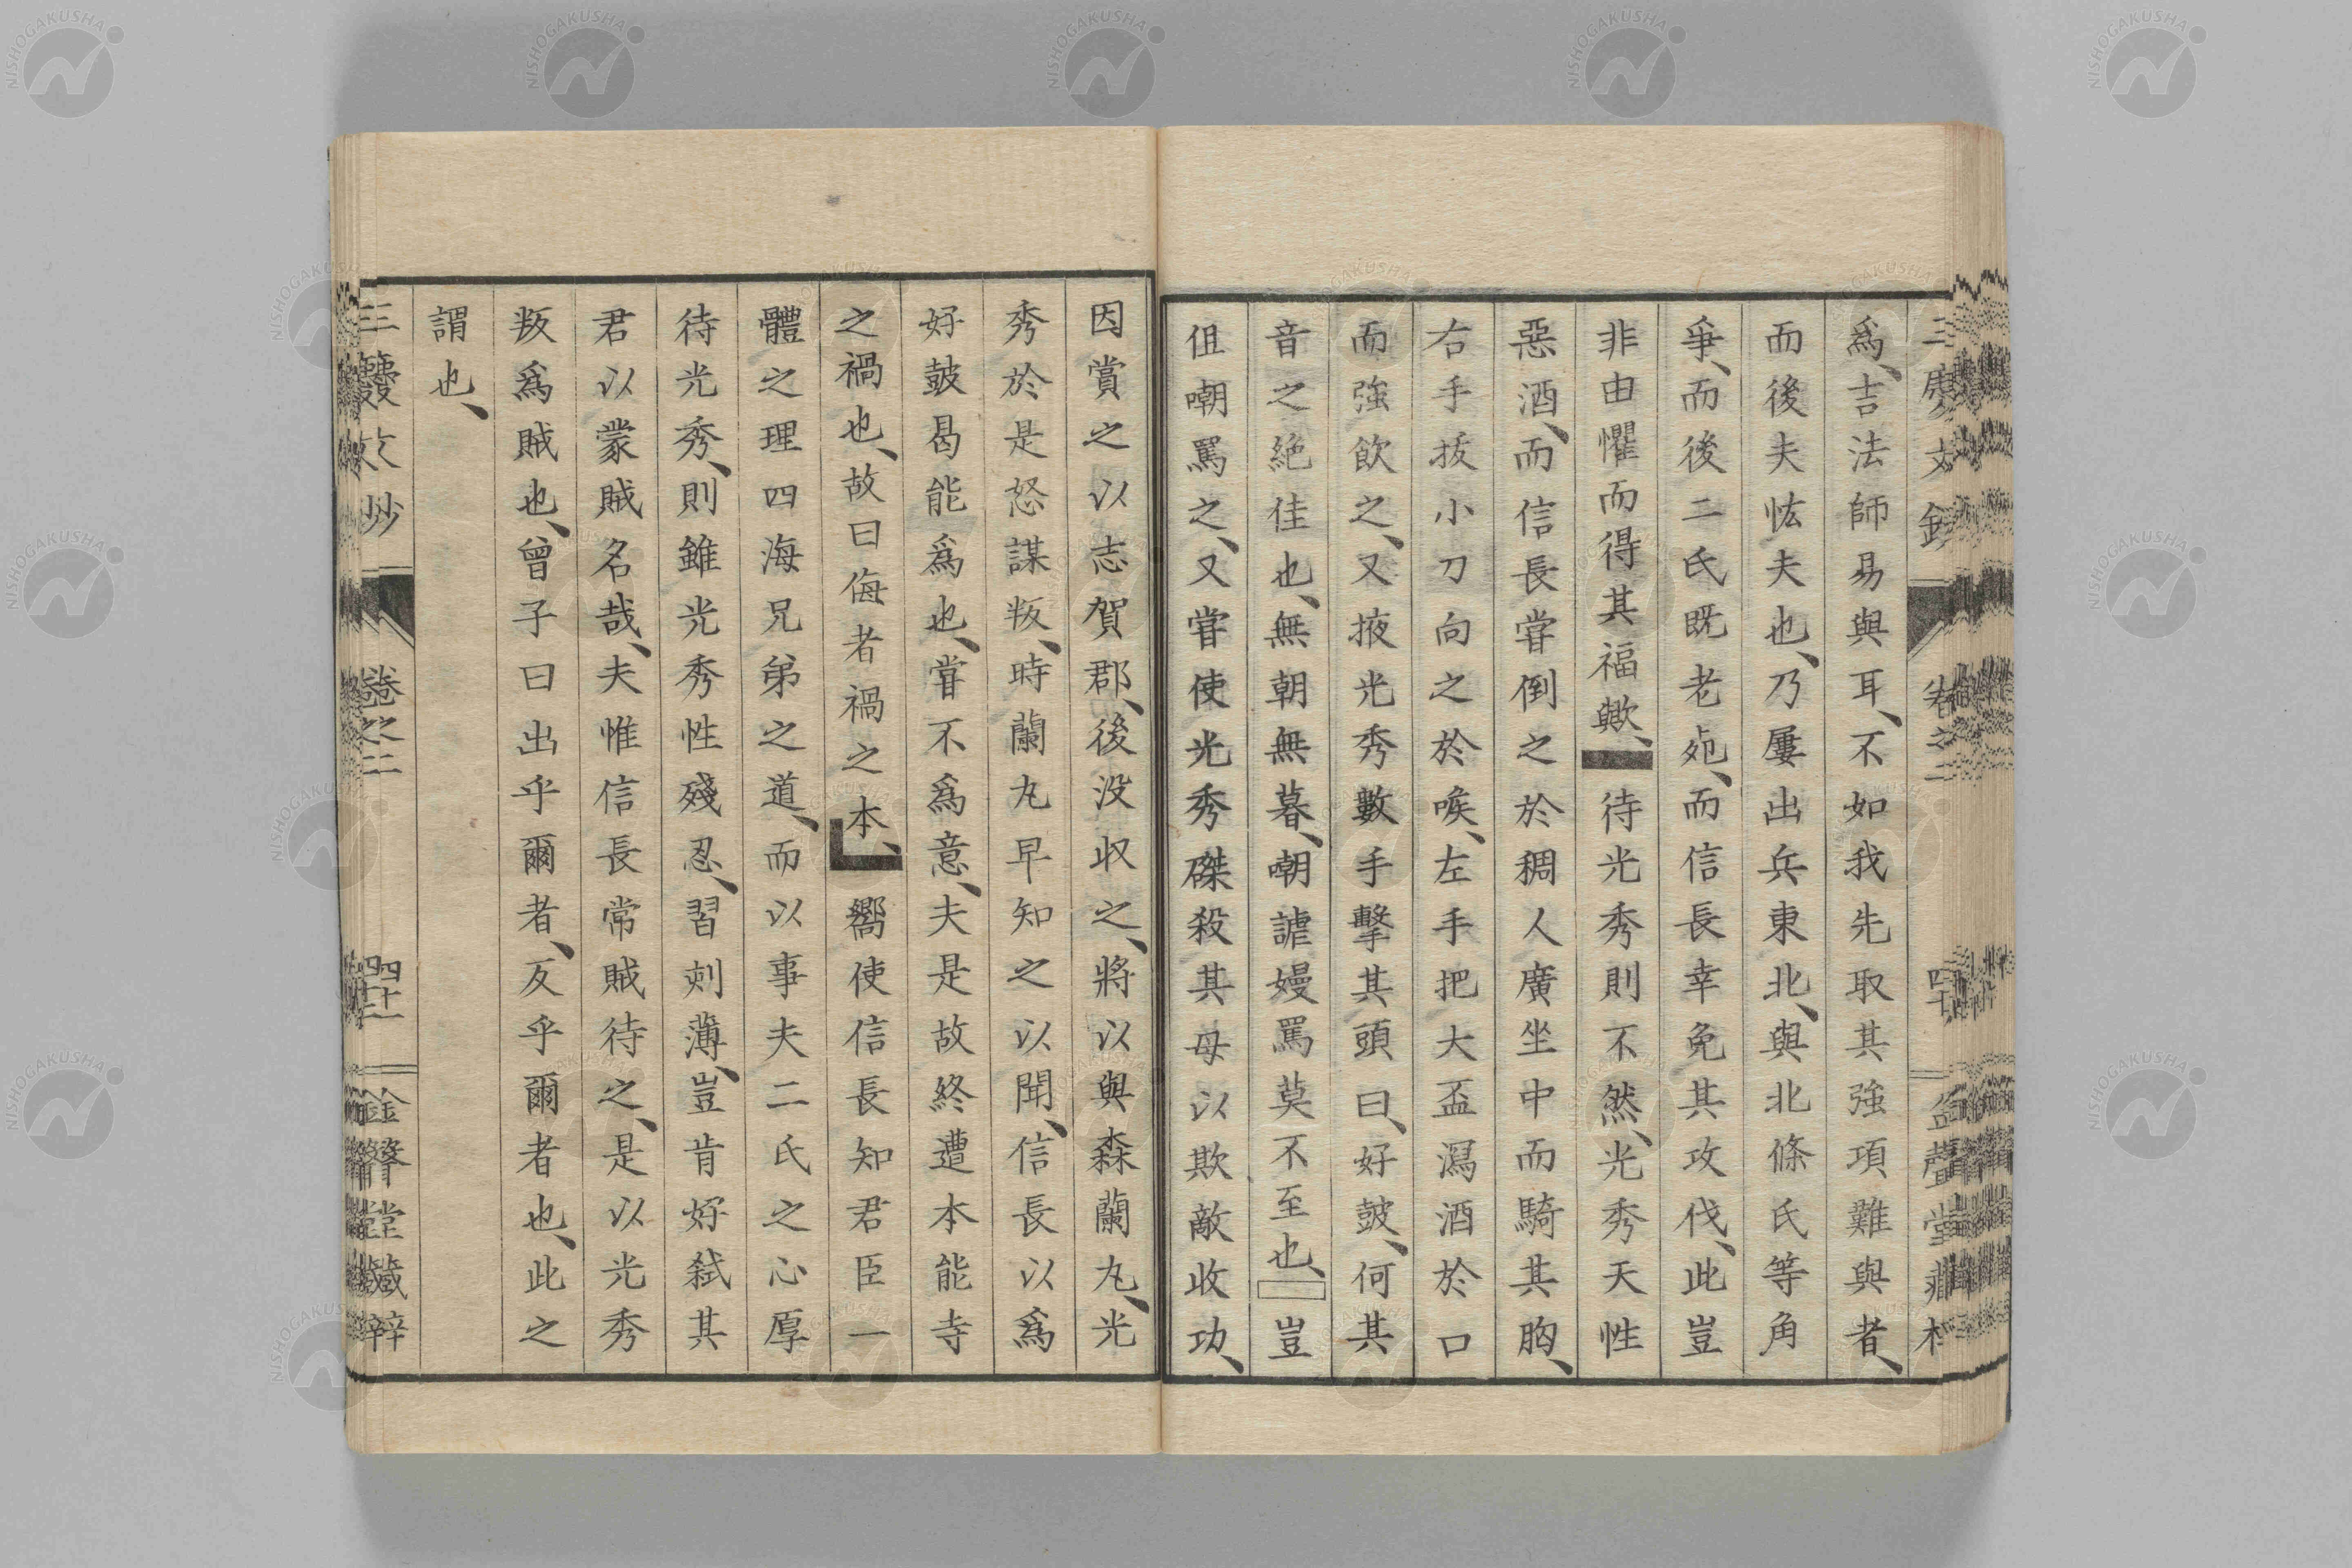 爲、吉法師易與耳、不如我先取其強項難與者、
而後夫恡夫也、乃屢出兵東北、與北條氏等角
爭、而後二氏既老死、而信長幸免其攻伐、此豈
非由懼而得其福歟、待光秀則不然、光秀天性
惡酒、而信長嘗倒之於稠人廣坐中而騎其胸、
右手拔小刀向之於喉、左手把大盃瀉酒於口
而強飲之、又掖光秀數手擊其頭曰、好鼓、何其
音之絶佳也、無朝無暮、嘲謔嫚罵莫不至也、豈
但嘲罵之、又嘗使光秀磔殺其母以欺敵收功、
因賞之以志賀郡、後没收之、將以與森蘭丸、光
秀於是怒謀叛、時蘭丸早知之以聞、信長以爲
好鼓曷能爲也、嘗不爲意、夫是故終遭本能寺
之禍也、故曰侮者禍之本、嚮使信長知君臣一
體之理四海兄弟之道、而以事夫二氏之心厚
待光秀、則雖光秀性殘忍、習刻薄、豈肯好弑其
君以蒙賊名哉、夫惟信長常賊待之、是以光秀
叛爲賊也、曾子曰出乎爾者、反乎爾者也、此之
謂也、
卷之二
NISHOGAKUSHA